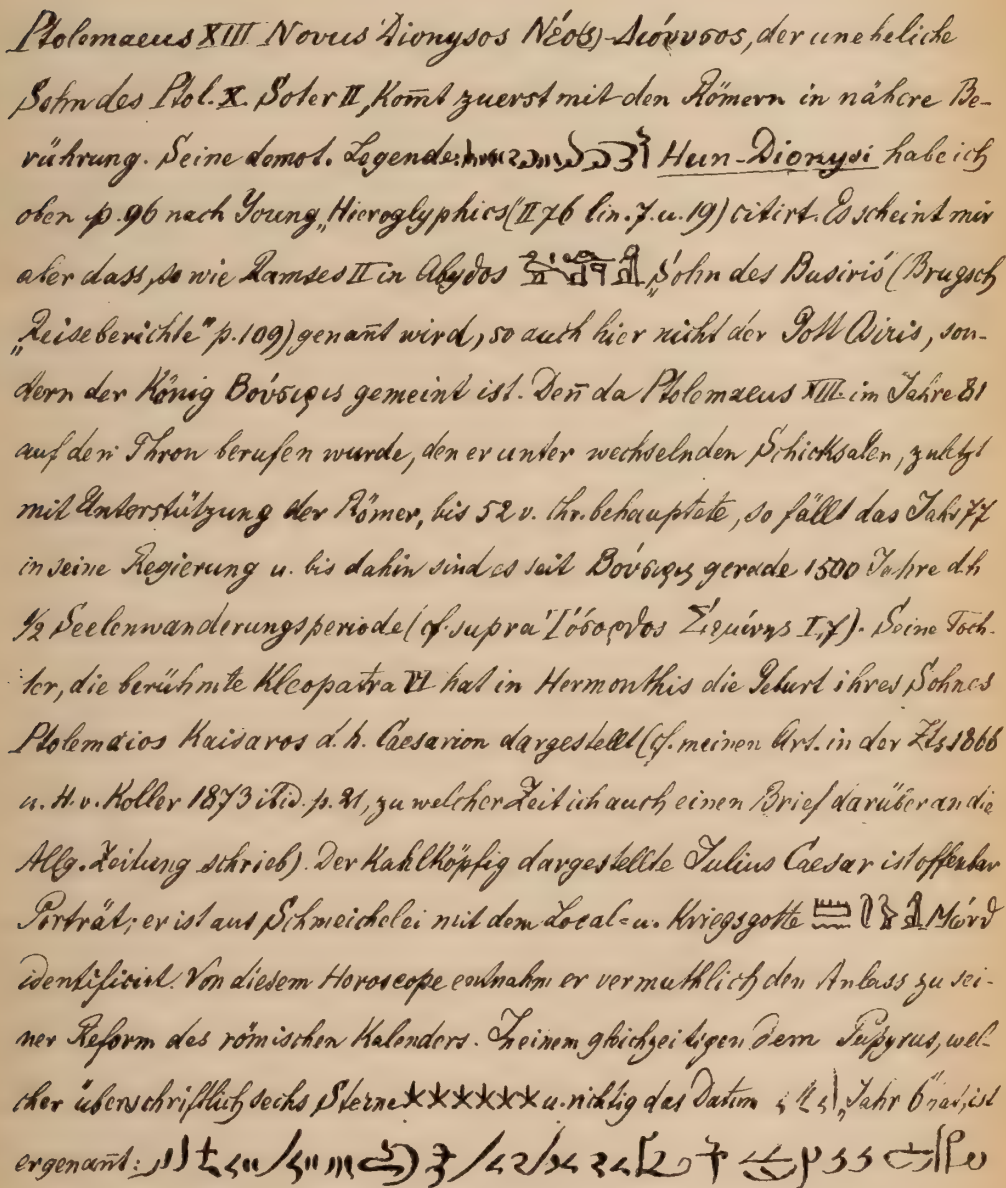 Ptolemaeus XIII Novus Dionysos Νέος-Διόνυσος, der uneheliche
Sohn des Ptol. X. Soter II, kom̄t zuerst mit den Römern in nähere Be-
rührung. Seine demot. Legende: Hun-Dionysi habe ich
oben p. 96 nach Young „Hieroglyphics (II 76 lin. 7. u. 19) citirt. Es scheint mir
aber dass, so wie Ramses II in Abydos „Sohn des Busiris (Brugsch
„Reiseberichte" p. 109) genan̄t wird, so auch hier nicht der Gott Osiris, son-
dern der König Βούσιρις gemeint ist. Den̄ da Ptolemaeus XIII. im Jahre 81
auf den Thron berufen wurde, den er unter wechselnden Schicksalen, zuletzt
mit Unterstützung der Römer, bis 52 v. Chr. behauptete, so fällt das Jahr 77
in seine Regierung u. bis dahin sind es seit Βούσιρις gerade 1500 Jahre d.h
1/2 Seelenwanderungsperiode (cf. supra I,7). Seine Toch-
ter, die berühmte Kleopatra VI hat in Hermonthis die Geburt ihres Sohnes
Ptolemaios Kaisaros d. h. Caesarion dargestellt (cf. meinen Art. in der Zts 1866
u. H. v. Koller 1873 ibid. p. 21, zu welcher Zeit ich auch einen Brief darüber an die
Allg. Zeitung schrieb). Der Kahlköpfig dargestellte Julius Caesar ist offenbar
Porträt; er ist aus Schmeichelei mit dem Local- u. Kriegsgotte
identificirt. Von diesem Horoscope entnahm er vermuthlich den Anlass zu sei-
ner Reform des römischen Kalenders. In einem gleichzeitigen dem Papyrus, wel-
cher überschriftlich sechs Sterne ✶✶✶✶✶✶ u. richtig das Datum „Jahr 6" hat, ist
er genan̄t: